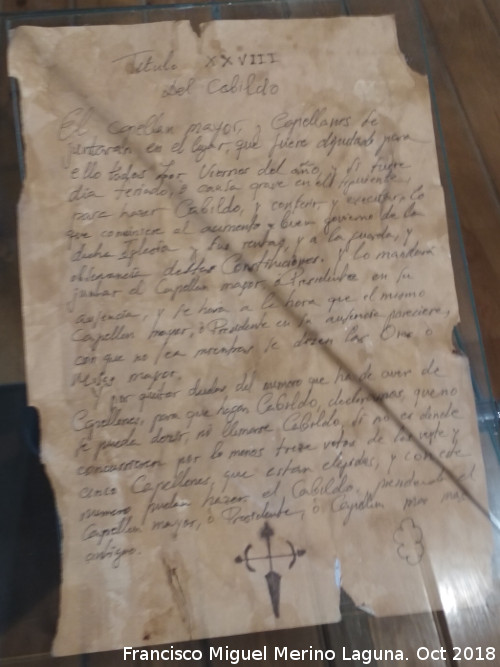 Titulo XXVIII
Del Cabildo
El capellan mayor, y Capellanes se
juntarán en el lugar, que fuere diputado para
ello todos los Viernes del año, y si fuere
dia feriado, o causa grave en el siguiente,
para hacer Cabildo, y conferir, y executar lo
que convenga al aumento y buen govierno de la
dicha Iglesia y sus rentas, y a la guarda, y
obseruancia destas Constituciones. Y lo mandará
juntar el Capellan mayor, o Presidente en su
ausencia, y se hará a la hora que el mismo
Capellan mayor, o Presidente en su ausencia pareciere,
con que no sea mientras se dizen las Oras, o
Missa mayor.
Y por quitar dudas del numero que ha de aver de
Capellanes, para que hagan Cabildo, declaramos, que no
se pueda dezir, ni llamarse Cabildo, si no es donde
concurrieren por lo menos treze votos de los veynte y
cinco Capellanes, que estan elegidos, y con este
numero puedan hazer el Cabildo, presidiendo el
Capellan mayor, o Presidente, o Capellan mas
antiguo.
Francisco Miguel Merino Laguna. Oct 2018